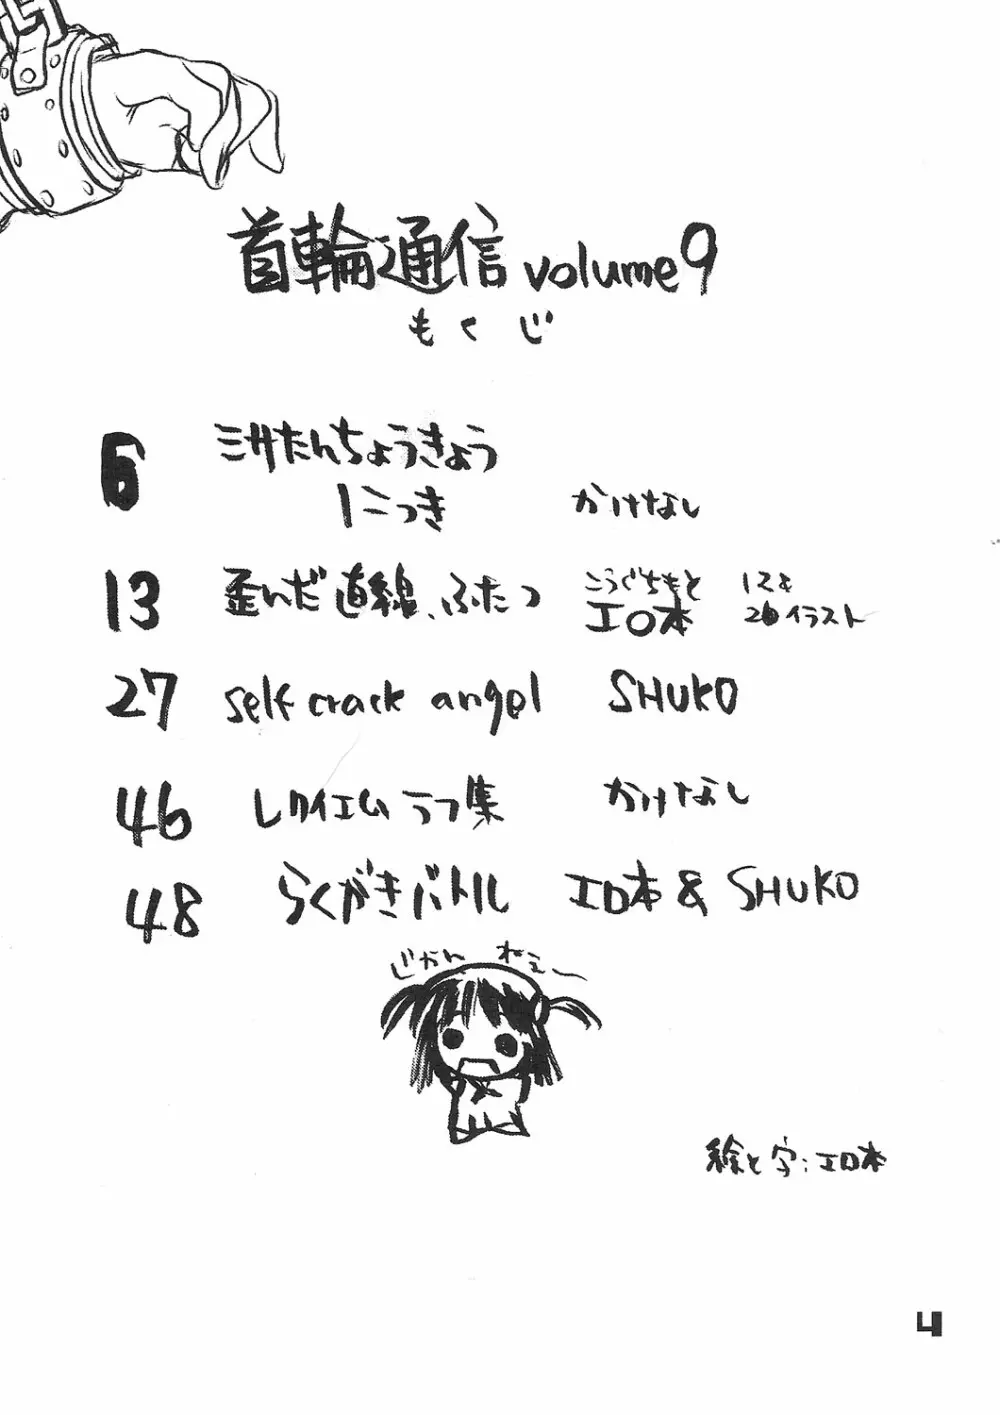 首輪通信 volume9
もくじ
6 三サたんちょうきょう
にっき かけなし
13 歪んだ直線、ふたつ こうぐちもと エロ本 イラスト
27 self crack angel SHUKO
46 レクイエムラフ集 かけなし
48 らくがきバトル エロ本 & SHUKO
じかんねえー
絵と字:エロ本
4